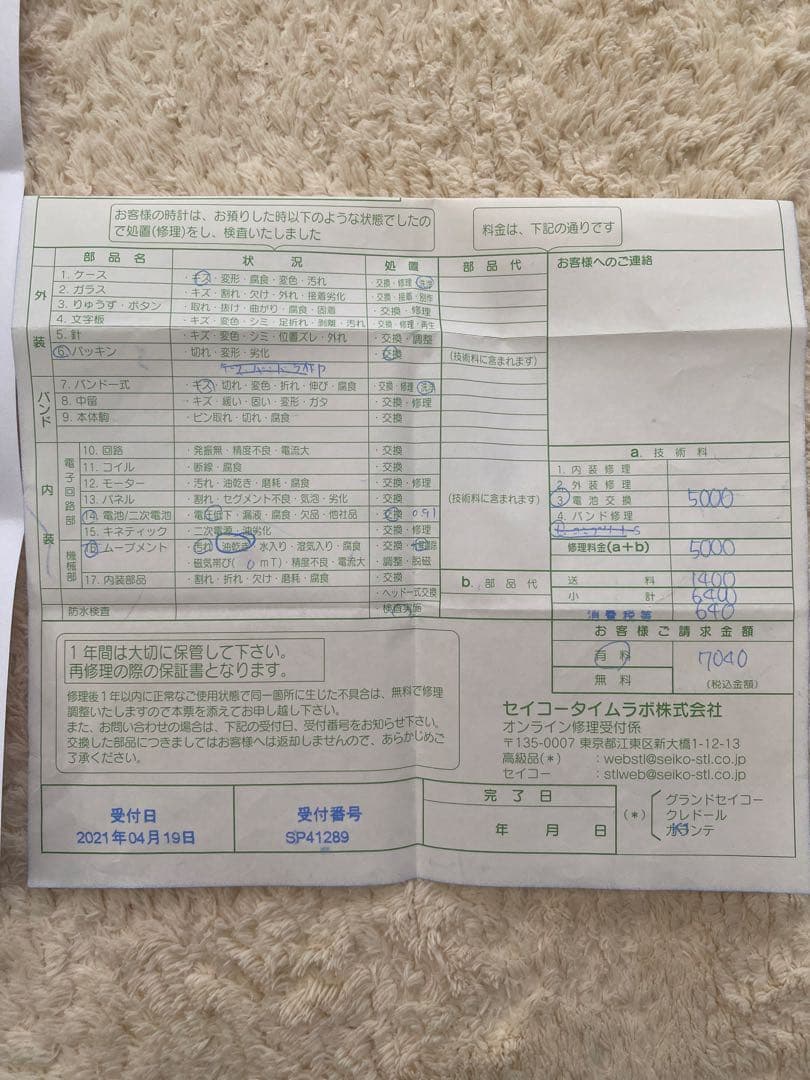 お客様の時計は、お預りした時以下のような状態でしたの
で処置(修理)をし、検査いたしました
料金は、下記の通りです
部品名 状況 処置 部品代 お客様へのご連絡
外装
1. ケース ・キズ・変形・腐食・変色・汚れ ・交換・修理・洗浄
2. ガラス ・キズ・割れ・欠け・外れ・接着劣化 ・交換・接着・別作
3. りゅうず・ボタン ・取れ・抜け・曲がり・腐食・固着 ・交換・修理
4. 文字板 ・キズ・変色・シミ・足折れ・剥離・汚れ ・交換・修理・再生
5. 針 ・キズ・変色・シミ・位置ズレ・外れ ・交換・調整
6 パッキン ・切れ・変形・劣化 ・交換 (技術料に含まれます)
バンド
7. バンド一式 ・キズ・切れ・変色・折れ・伸び・腐食 ・交換・修理・洗浄
8. 中留 ・キズ・緩い・固い・変形・ガタ ・交換・修理
9. 本体駒 ・ピン取れ・切れ・腐食 ・交換
内装
電子回路部
10. 回路 ・発振無・精度不良・電流大 ・交換
11. コイル ・断線・腐食 ・交換
12. モーター ・汚れ・油乾き・磨耗・腐食 ・交換・修理
13. パネル ・割れ・セグメント不良・気泡・劣化 ・交換 (技術料に含まれます)
14. 電池/二次電池 ・電圧低下・漏液・腐食・欠品・他社品 ・交換 091
15. キネティック ・二次電源・油劣化 ・交換・修理
機械部
16 ムーブメント ・汚れ・油乾き・水入り・湿気入り・腐食 ・交換・
・磁気帯び(0mT)・精度不良・電流大 ・調整・脱磁
17. 内装部品 ・割れ・折れ・欠け・磨耗・腐食 ・交換
・ヘッド一式交換
防水検査 ・検査実施
a. 技術料
1. 内装修理
2. 外装修理
3 電池交換 5000
4. バンド修理
修理料金(a+b) 5000
b. 部品代
送料 1400
小計 6400
消費税等 640
お客様ご請求金額
有料 7040
無料 (税込金額)
1年間は大切に保管して下さい。
再修理の際の保証書となります。
修理後1年以内に正常なご使用状態で同一箇所に生じた不具合は、無料で修理
調整いたしますので本票を添えてお申し越し下さい。
また、お問い合わせの場合は、下記の受付日、受付番号をお知らせ下さい。
交換した部品につきましてはお客様へは返却しませんので、あらかじめご
了承ください。
セイコータイムラボ株式会社
オンライン修理受付係
〒135-0007 東京都江東区新大橋1-12-13
高級品(*) :webstl@seiko-stl.co.jp
セイコー :stlweb@seiko-stl.co.jp
受付日
2021年04月19日
受付番号
SP41289
完了日
年 月 日
(*)
グランドセイコー
クレドール
ガランテ